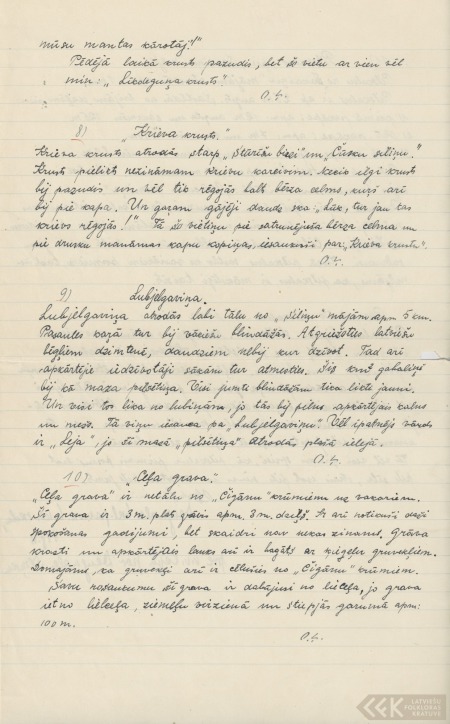 mūsu mantas kārotāj!"
Pēdējā laikā krusts pazudis, bet šo vietu ar vien vēl
min: „Likdeguņa krusts."
O.Ļ.
8) „Krieva krusts."
Krieva krusts atrodās starp „Stārīšu birzi" un „Čūsku siliņu."
Krusts pielikts nezināmam krievu kareivim. Kādu ilgi krusts
bij pazudis un vēl tik rēgojās balts bērza celms, kurš arī
bij pie kapa. Un gaŗam gājēji daudz ska: „lūk, tur jau tas
krievs rēgojās!" Tā šo vietiņu pie satrunējuša bērza celma un
pie drusku manāmas kapu kopiņas, iesaukuši par „Krieva krustu".
O.Ļ.
9) Lubjelgaviņa.
Lubjelgaviņa atrodās labi tālu no „Siliņu" mājām apm 5 km.
Pasaules kaŗā tur bij vāciešu blindāžās. Atgriežoties latviešu
bēgļiem dzimtenē, daudziem nebij kur dzīvot. Tad arī
apkārtējie iedzīvotāji sākām tur atmesties. Šis km² gabaliņš
bij kā maza pilsētiņa. Visi jumti blindāžām tika likti jauni.
Un visi tos lika no lubiņām, jo tās bij pilns apkārtējais kalns
un mežs. Tā viņu iesauca pa „Lubjelgaviņu". Vēl īpatnējs vārds
ir „Leja", jo šī mazā „pilsētiņa" atrodās plašā ielejā.
O.Ļ.
10) Ceļa grava.
„Ceļa grava" ir netālu no „Čigānu" krūmiem uz vakariem.
Šī grava ir 3 m. plats grāvis apm. 3 m. dziļš. Te arī notikuši daži
spokošanas gadījumi, bet skaidri nav nekas zināms. Grāva
krasti un apkārtējais lauks arī ir bagāts ar ķieģeļu gruvekļiem.
Domājams, ka gruvekļi arī ir cēlušies no „Čigānu" krūmiem.
Savu nosaukumu šī grava ir dabūjusi no lielceļa, jo grava
iet no lielceļa, ziemeļu virzienā un stiepjās garumā apm:
100 m.
O.Ļ.
LATVIEŠU
FOLKLORAS
KRĀTUVE